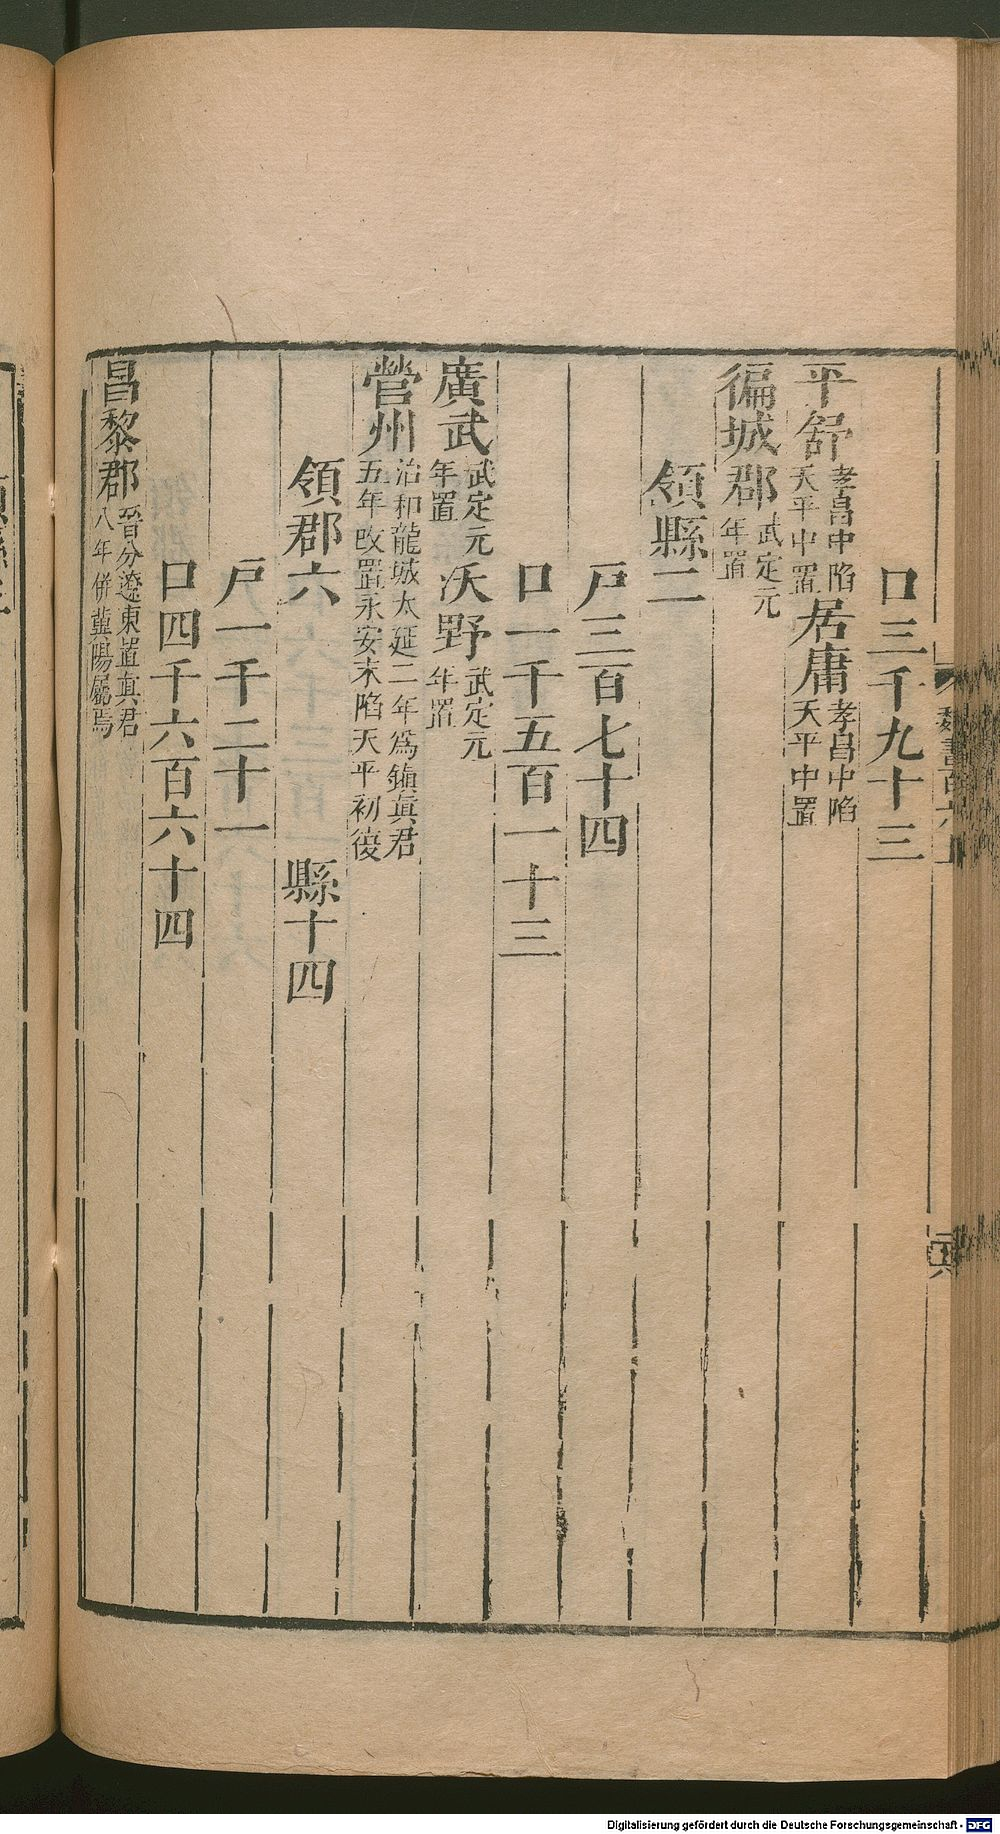 口三千九十三
平舒孝昌中陷天平中置居庸孝昌中陷天平中置
徧城郡武定元年置
領縣二
戸三百七十四
口一千五百一十三
廣武武定元年置沃野武定元年置
營州治和龍城太延二年爲鎮眞君五年改置永安末陷天平初復
領郡六 縣十四
戸一千二十一
口四千六百六十四
昌黎郡晉分遼東置眞君八年併冀陽屬焉
魏書百六上
Digitalisierung gefördert durch die Deutsche Forschungsgemeinschaft - DFG